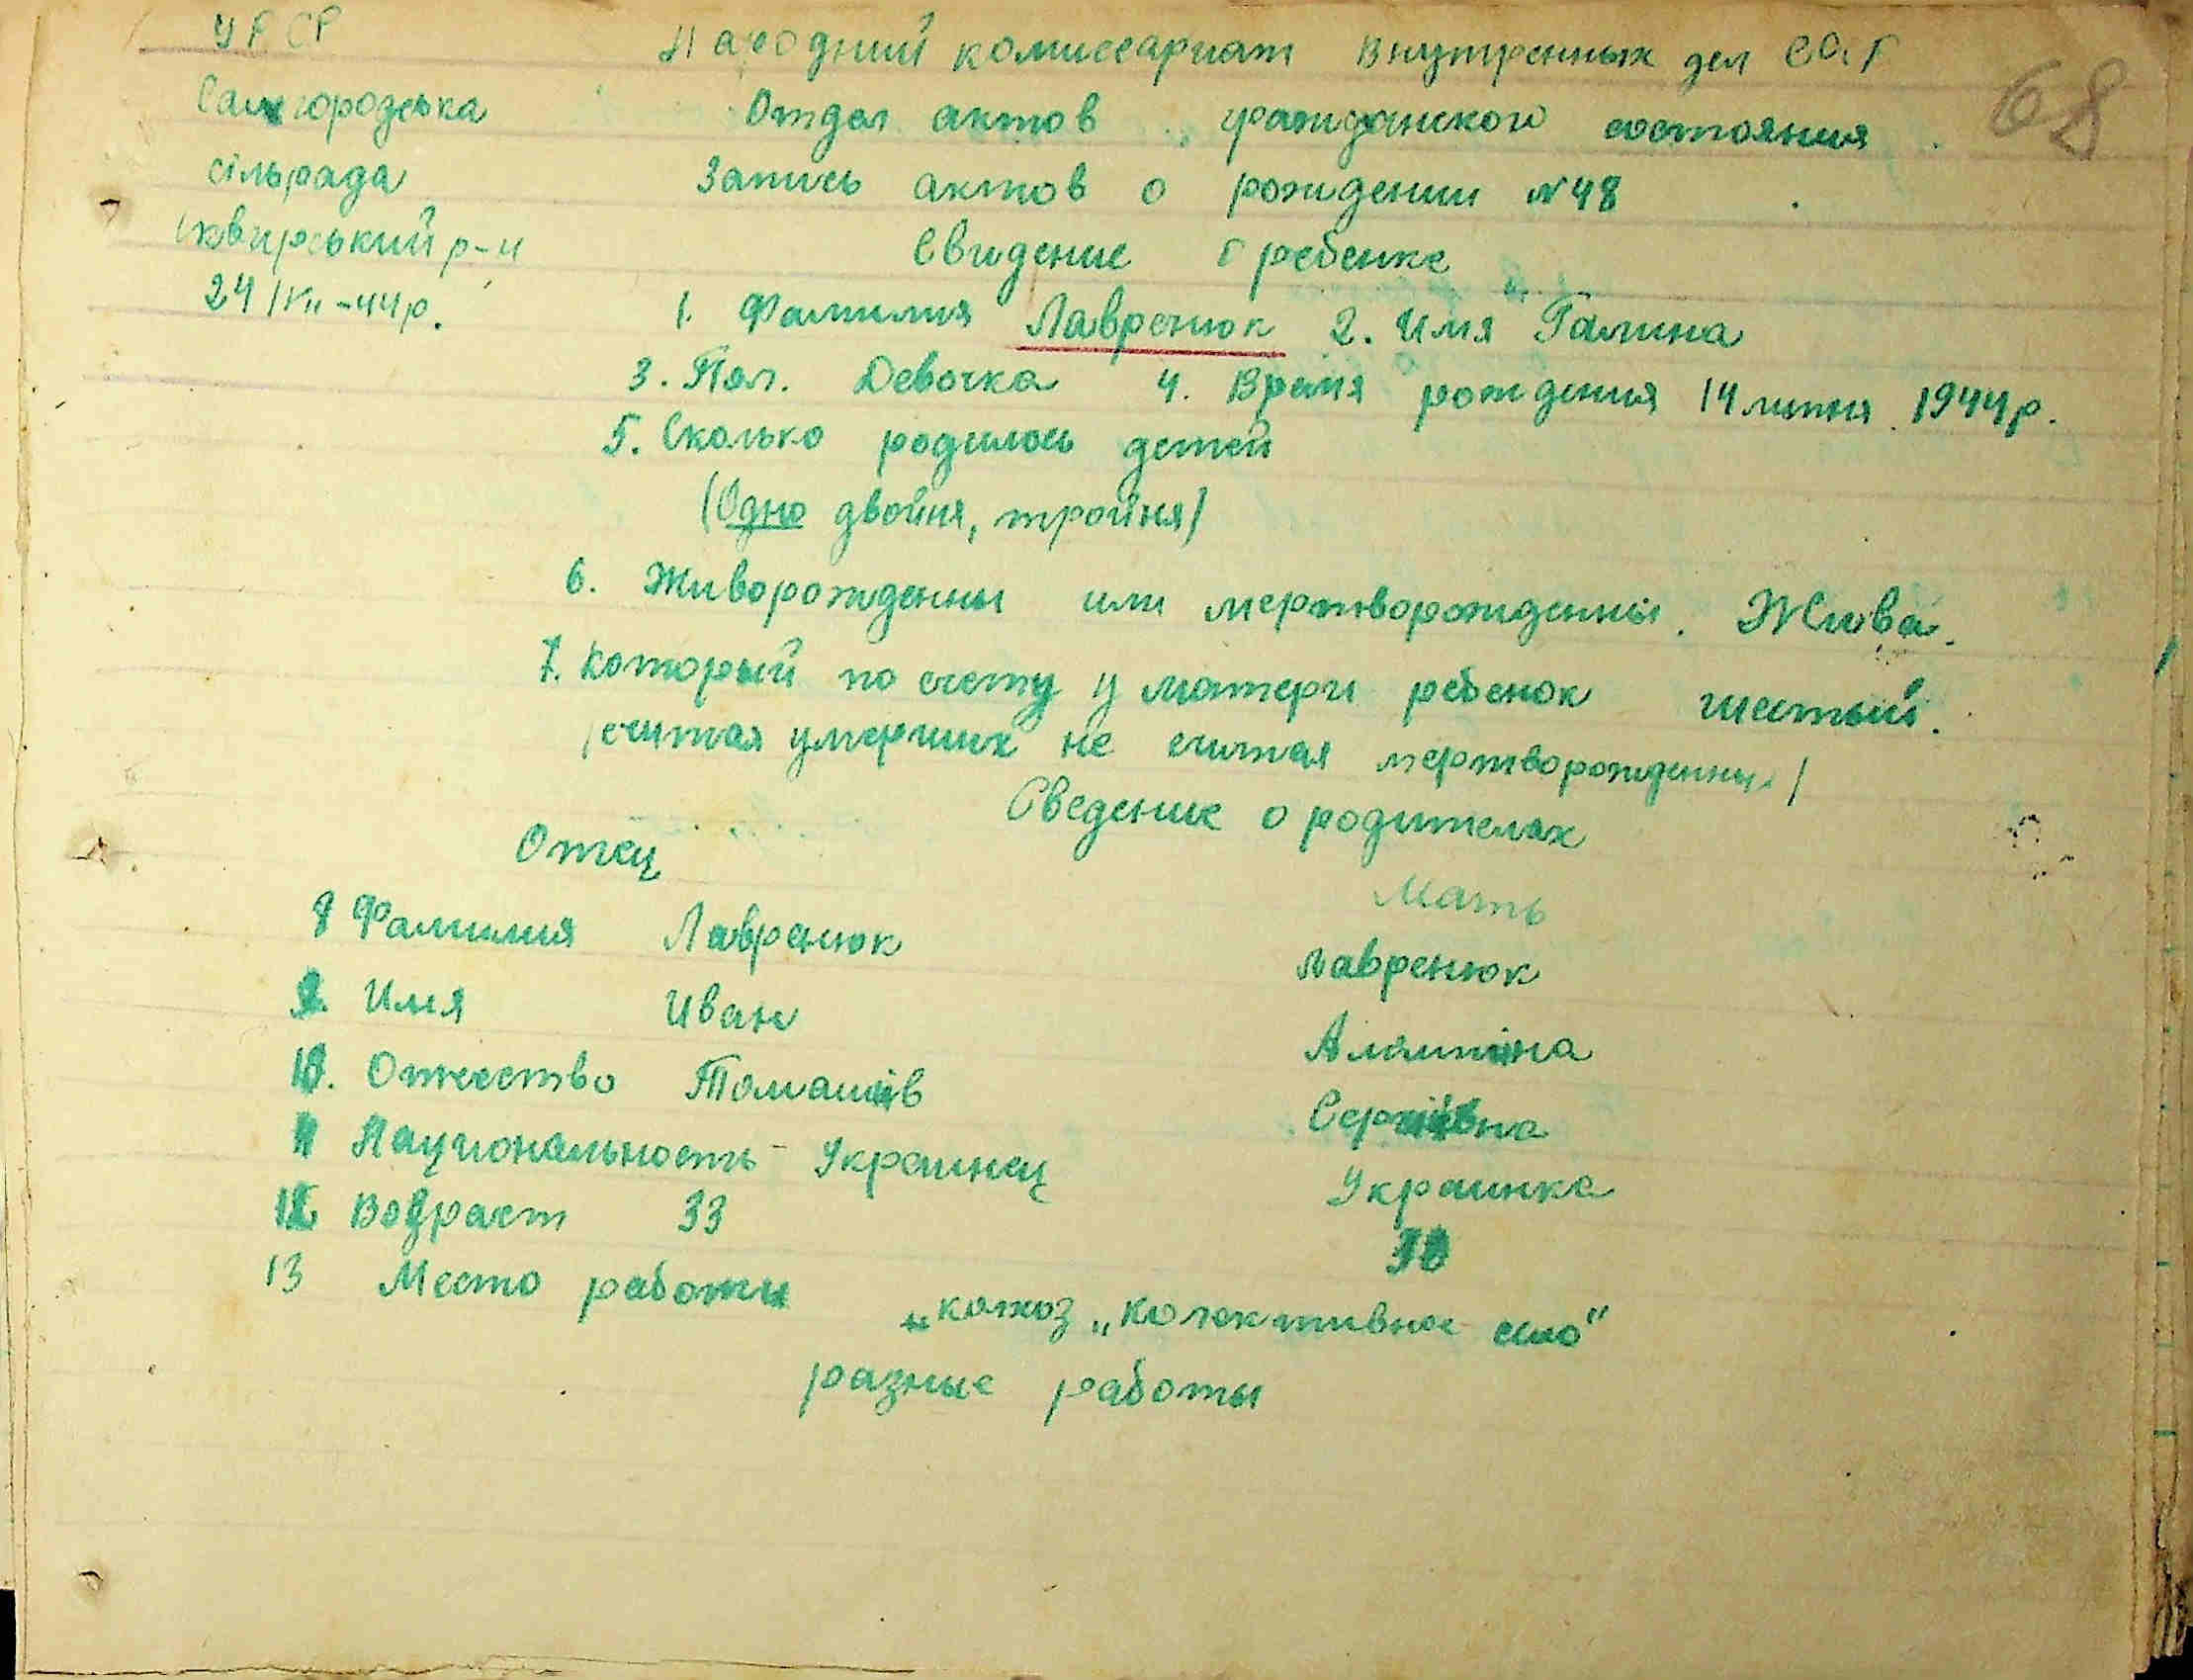 УРСР
Самгородська
сільрада
Сквирський р-н
24/VII-44р.
68
Народний комиссариат Внутренных дел СССР
Отдел актов гражданского состояния
Запись актов о рождении №48
Свидение о ребенке
1. Фамилия Лавренюк 2. Имя Галина
3. Пол. Девочка 4. Время рождения 14 липня 1944р.
5. Сколько родилось детей
(Одно двойня, тройня)
6. Живорожденны или мертворожденны. Жива.
7. Который по счету у матери ребенок шестый.
(считая умерших не считая мертворожденных)
Сведение о родителях
Отец
Мать
8 Фамилия Лавренюк Лавренюк
9. Имя Иван
10. Отчество Томашів Сергіївна
11 Национальность - Украинец Украинка
12 Возраст 33
13 Место работы „колхоз „Колективное село"
разные работы